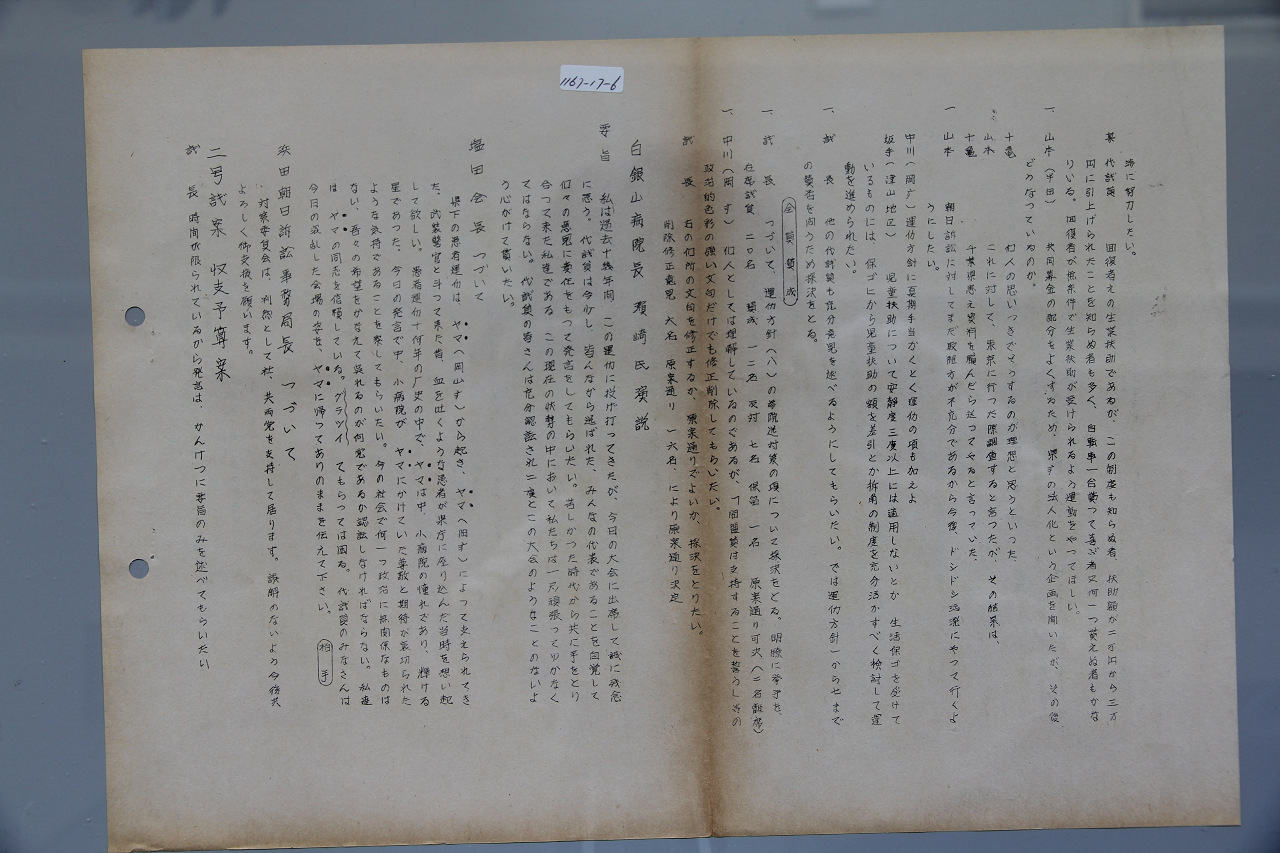 1167-17-6
凉に努力したい。
某 代議員 回復者えの生業扶助であるが、この制度も知らぬ者 扶助額が二万円から三万
円に引上げられたことを知らぬ者も多く、自転車一台貰つて喜ぶ者又何一つ貰えぬ者もかな
りいる。回復者が無条件で生業扶助が受けられるよう運動をやつてほしい。
一、山本（早田） 共同募金の配分をよくするため、県すの法人化という企画を聞いたが、その後
どうなつているのか。
十亀 何人の思いつきでそうするのが理想と思うといつた
山本 これに対して、東京に行つた際調査すると言つたが、その結果は、
十亀 千葉県患え資料を頼んだら送つてやると言っていた
一 山本 朝日訴訟に対してまだ取組方が不充分であるから今度、ドシドシ活溌にやつて行くよ
うにしたい。
中川（岡療）運仂方針に夏期手当かくとく運仂の項も加えよ
坂手（津山地区） 児童扶助について安静度三度以上には適用しないとか 生活保ゴを受けて
いるものには、保ゴヒから児童扶助の額を差引とか拆角の制度を充分活かすべく検討して運
動を進められたい。
一、議 長 他の代議員も充分意見を述べるようにしてもらいたい。では運仂方針一から七まで
の賛否を問うため採決をとる。
全員賛成
一、議 長 つづいて、運仂方針（八）の 院送対策の項について採決をとる。明瞭に挙手を、
在席議員 二〇名 賛成 一二名 反対 七名 保留 一名 原案通り可決、（二名離席）
一、中川（岡す） 個人としては理解しているのであるが、「同盟員は支持することを誓うし等の
政治的色彩の強い文句だけでも修正削除してもらいたい。
議 長 右の個所の文句を修正するか、原案通りでよいか、採決をとりたい。
削除修正意見 六名 原案通り 一六名、により原案通り決定
白銀山病院長 瀬崎氏演説
要旨 私は過去十幾年間 この運仂に投げ打ってきたが、今日の大会に出席して誠に残念
に思う。代議員は今少し、皆んなから選ばれた、みんなの代表であることを自覚して
個々の意見に責任をもつて発言をしてもらいたい。苦しかつた時代から共に手をとり
合つて来た私達である この現在の状勢の中において私たちは一層頑張ってゆかなく
てはならない。代議員の皆さんは充分認識され二度とこの大会のようなことのないよ
う心がけて貰いたい。
塩田会長 つづいて
県下の患者運仂は、ヤマ（岡山す）から起き、ヤマ（同す）によつて支えられてき
た。武装警官と斗つて来た者 血を吐くような患者が県庁に座り込んだ当時を想い起
して欲しい。患者運仂十何年の厂史の中で、ヤマは中、小病院の憧れであり、輝ける
星であつた。今日の発言で中、小病院が、ヤマにかけていた尊敬と期待が裏切られた
ような気持であることを察してもらいたい。今の社会で何一つ政治に無関係なものは
ない、吾々の希望をかなえて呉れるのが何党であるか認識しなければならない。私達
は、ヤマの同志を信頼している。グラツイてもらつては困る。代議員のみなさんは
今日の混乱した会場の空を、ヤマに帰つてありのままを伝えて下さい。 拍手
浜田朝日訴訟事務局長 つづいて
対策委員会は、利慾として社、共両党を支持して居ります。誤解のないよう今後共
よろしく御支援を願います。
二号議案 収支予算案
議 長 時間が限られているから発言は、かんけつに要旨のみを述べてもらいたい